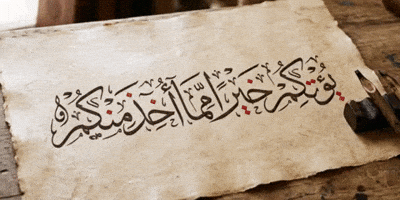 يُؤْتِكُمْ خَيْرًا مِمَّا أُخِذَ مِنْكُمْ